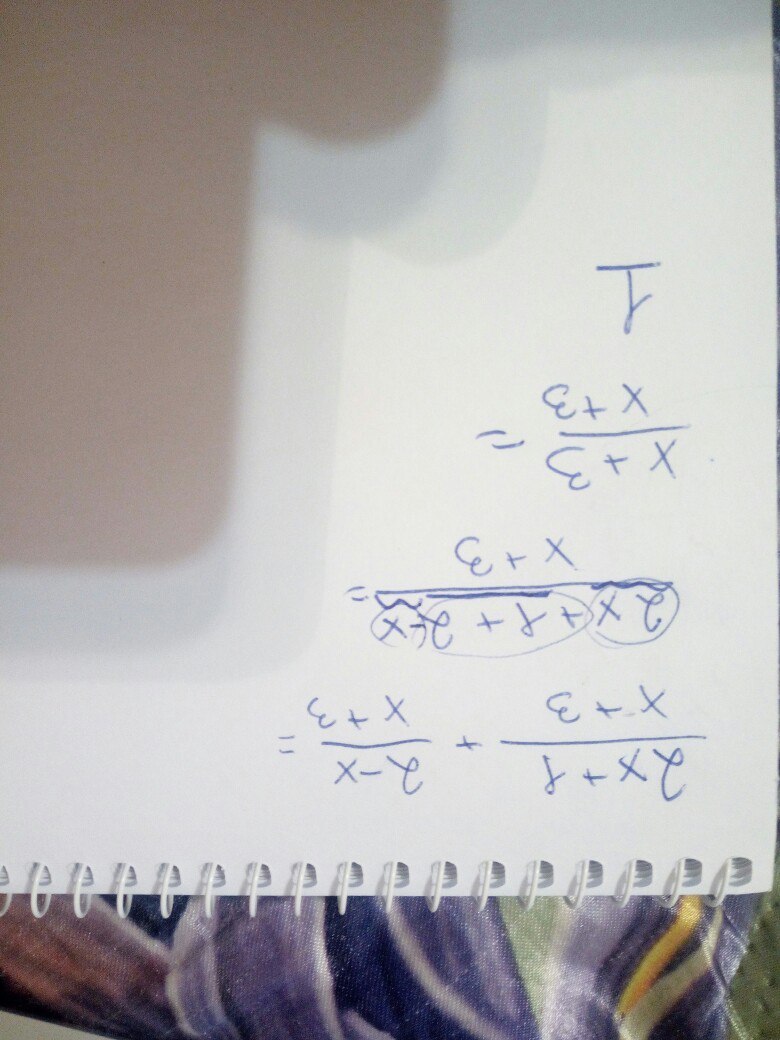 2x+1/x+3 + 2-x/x+3 =
2x+1+2-x/x+3 =
x+3/x+3 =
1